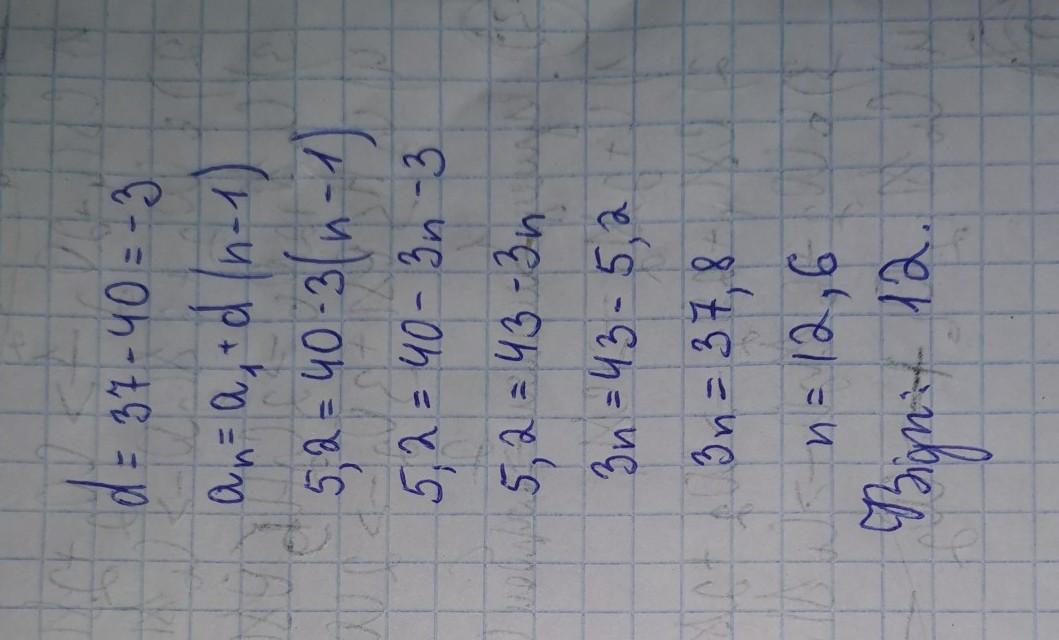 d = 37 - 40 = -3
aₙ = a₁ + d (n - 1)
5,2 = 40 - 3(n - 1)
5,2 = 40 - 3n - 3
5,2 = 43 - 3n
3n = 43 - 5,2
3n = 37,8
n = 12,6
Відп: 12.